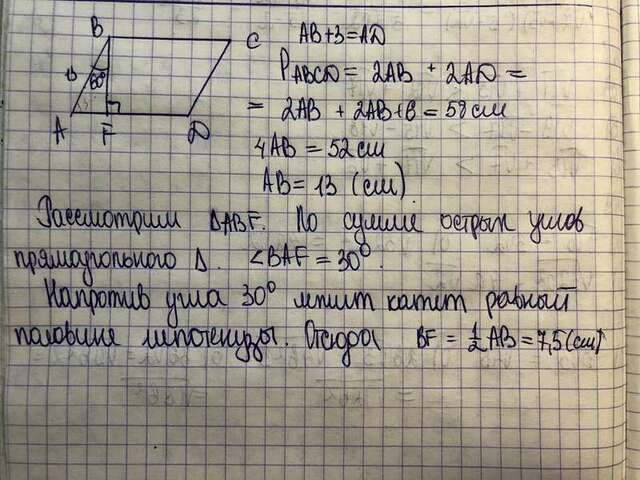 AB+3=AD
B
C
PABCD = 2AB + 2AD =
13
60°
= 2AB + 2AB+6 = 58 см
A
F
D
4AB = 52 см
AB = 13 (см)
Рассмотрим ΔABF. По сумме острых углов
прямоугольного Δ. ∠BAF = 30°.
Напротив угла 30° лежит катет равный
половине гипотенузы. Отсюда BF = 1/2 AB = 7,5 (см)